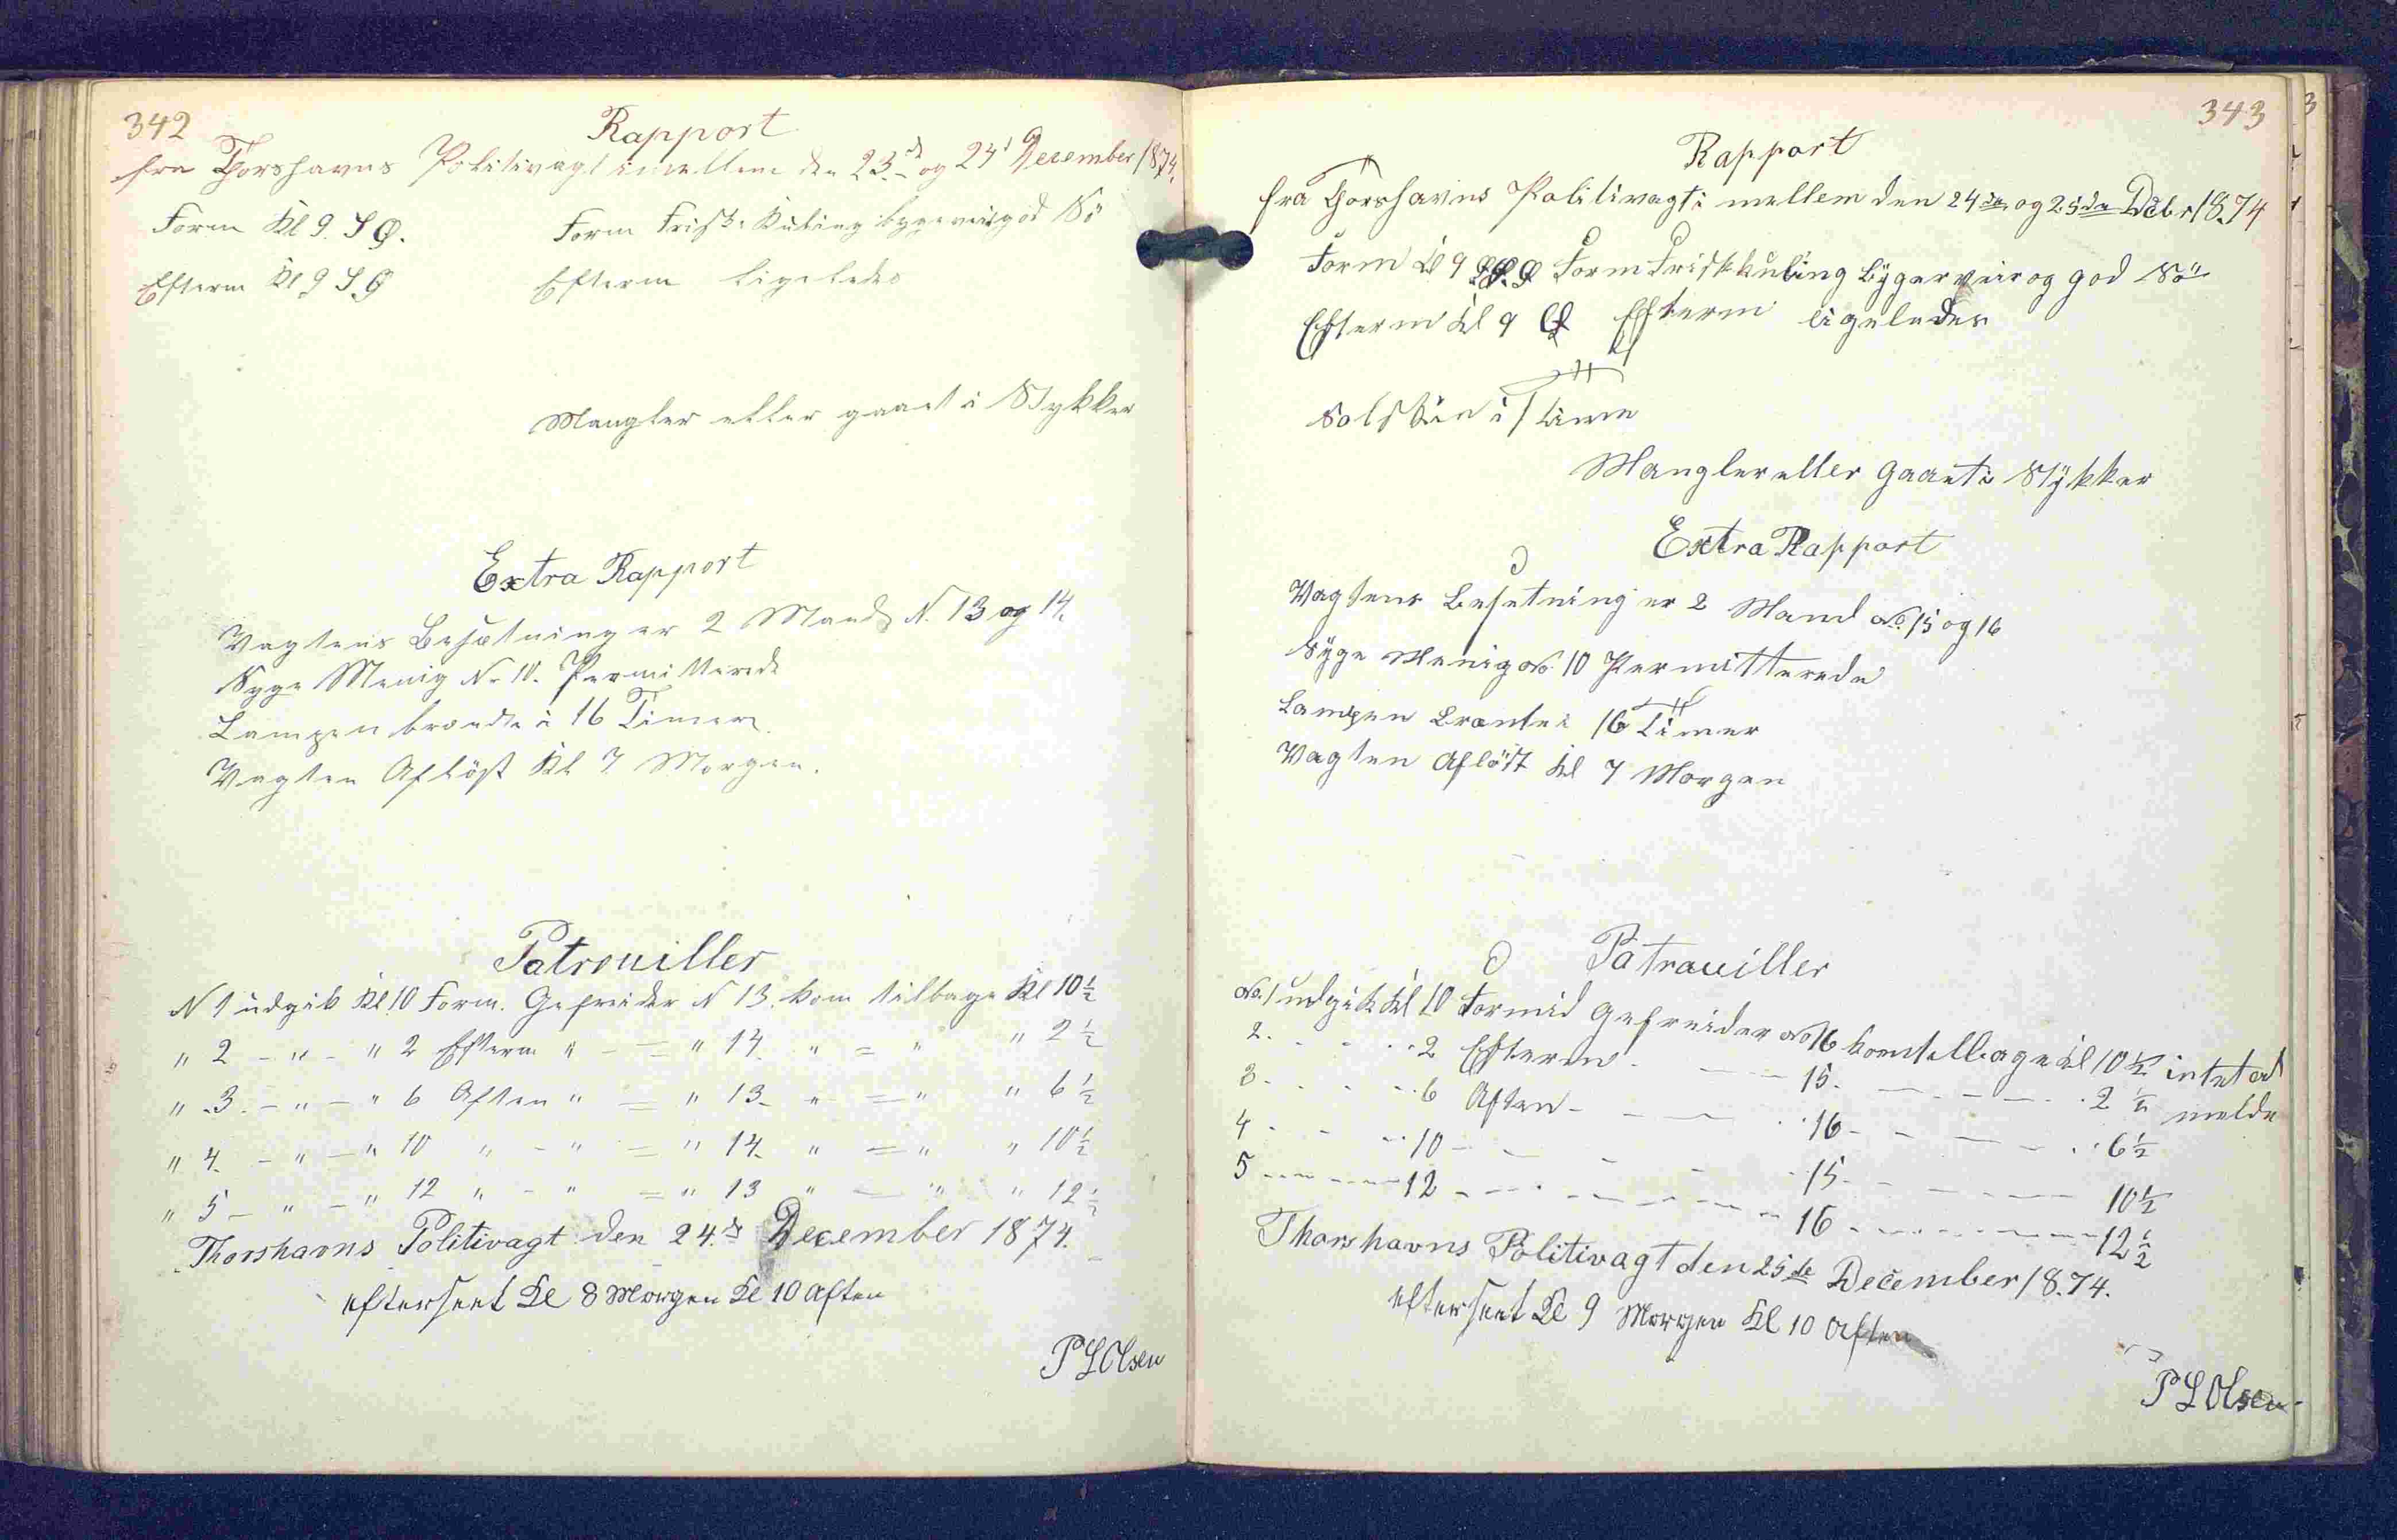 342
Rapport
fra Thorshavns Politivagt imellem den 23de og 24d December 1874.
Form Kl 9. S Ø. Form Frisk: Kuling bygeveir god Sö
Efterm Kl 9 S Ø Efterm ligeledes
Mangler eller gaaet i Stykker
Extra Rapport
Vagtens Besætning er 2 Mand N. 13 og 14.
Syge Menig N. 10. Permitterede
Lampen brændte i 16 Timer
Vagten Aflöst Kl 7 Morgen.
Patrouiller
N 1 udgik Kl 10 Form. Gefreider N 13. kom tilbage Kl 10½
" 2 - " - " 2 Efterm " - = " 14. " = " " 2½
" 3. - " - " 6 Aften " = " 13. " = " " 6½
" 4. - " - " 10 " - " = " 14. " = " " 10½
" 5 - " - " 12 " - " = " 13 " = " " 12½
Thorshavns Politivagt den 24.de December 1874.
efterseet Kl 8 Morgen Kl 10 Aften
P L Olsen
343
Rapport
fra Thorshavns Politivagt i mellem den 24de og 25de Decbr 1874
Form Kl 9 Form Frisk kuling Bygerveir og god Sö
Efterm Kl 9 Efterm ligeledes
Solskin i 1 Time
Mangler eller gaaet i Stykker
Extra Rapport
Vagtens Besetning er 2 Mand No 15 og 16
Syge Menig No 10 Permitterede
Lampen Brænte i 16 Timer
Vagten Aflöst Kl 7 Morgen
Patrouiller
No. 1 udgik Kl 10 Formid Gefreider No 16 kom tilbage Kl 10½ intet at
2. - - - 2 Efterm. - - 15. - - - 2½ melde
3 - - - 6 Aften - - - 16 - - - 6½
4 - - - 10 - - - 15. - - - 10½
5 - - - 12 - - - 16 - - - 12½
Thorshavns Politivagt den 25de December 1874.
efterseet Kl 9 Morgen Kl 10 Aften
P L Olsen